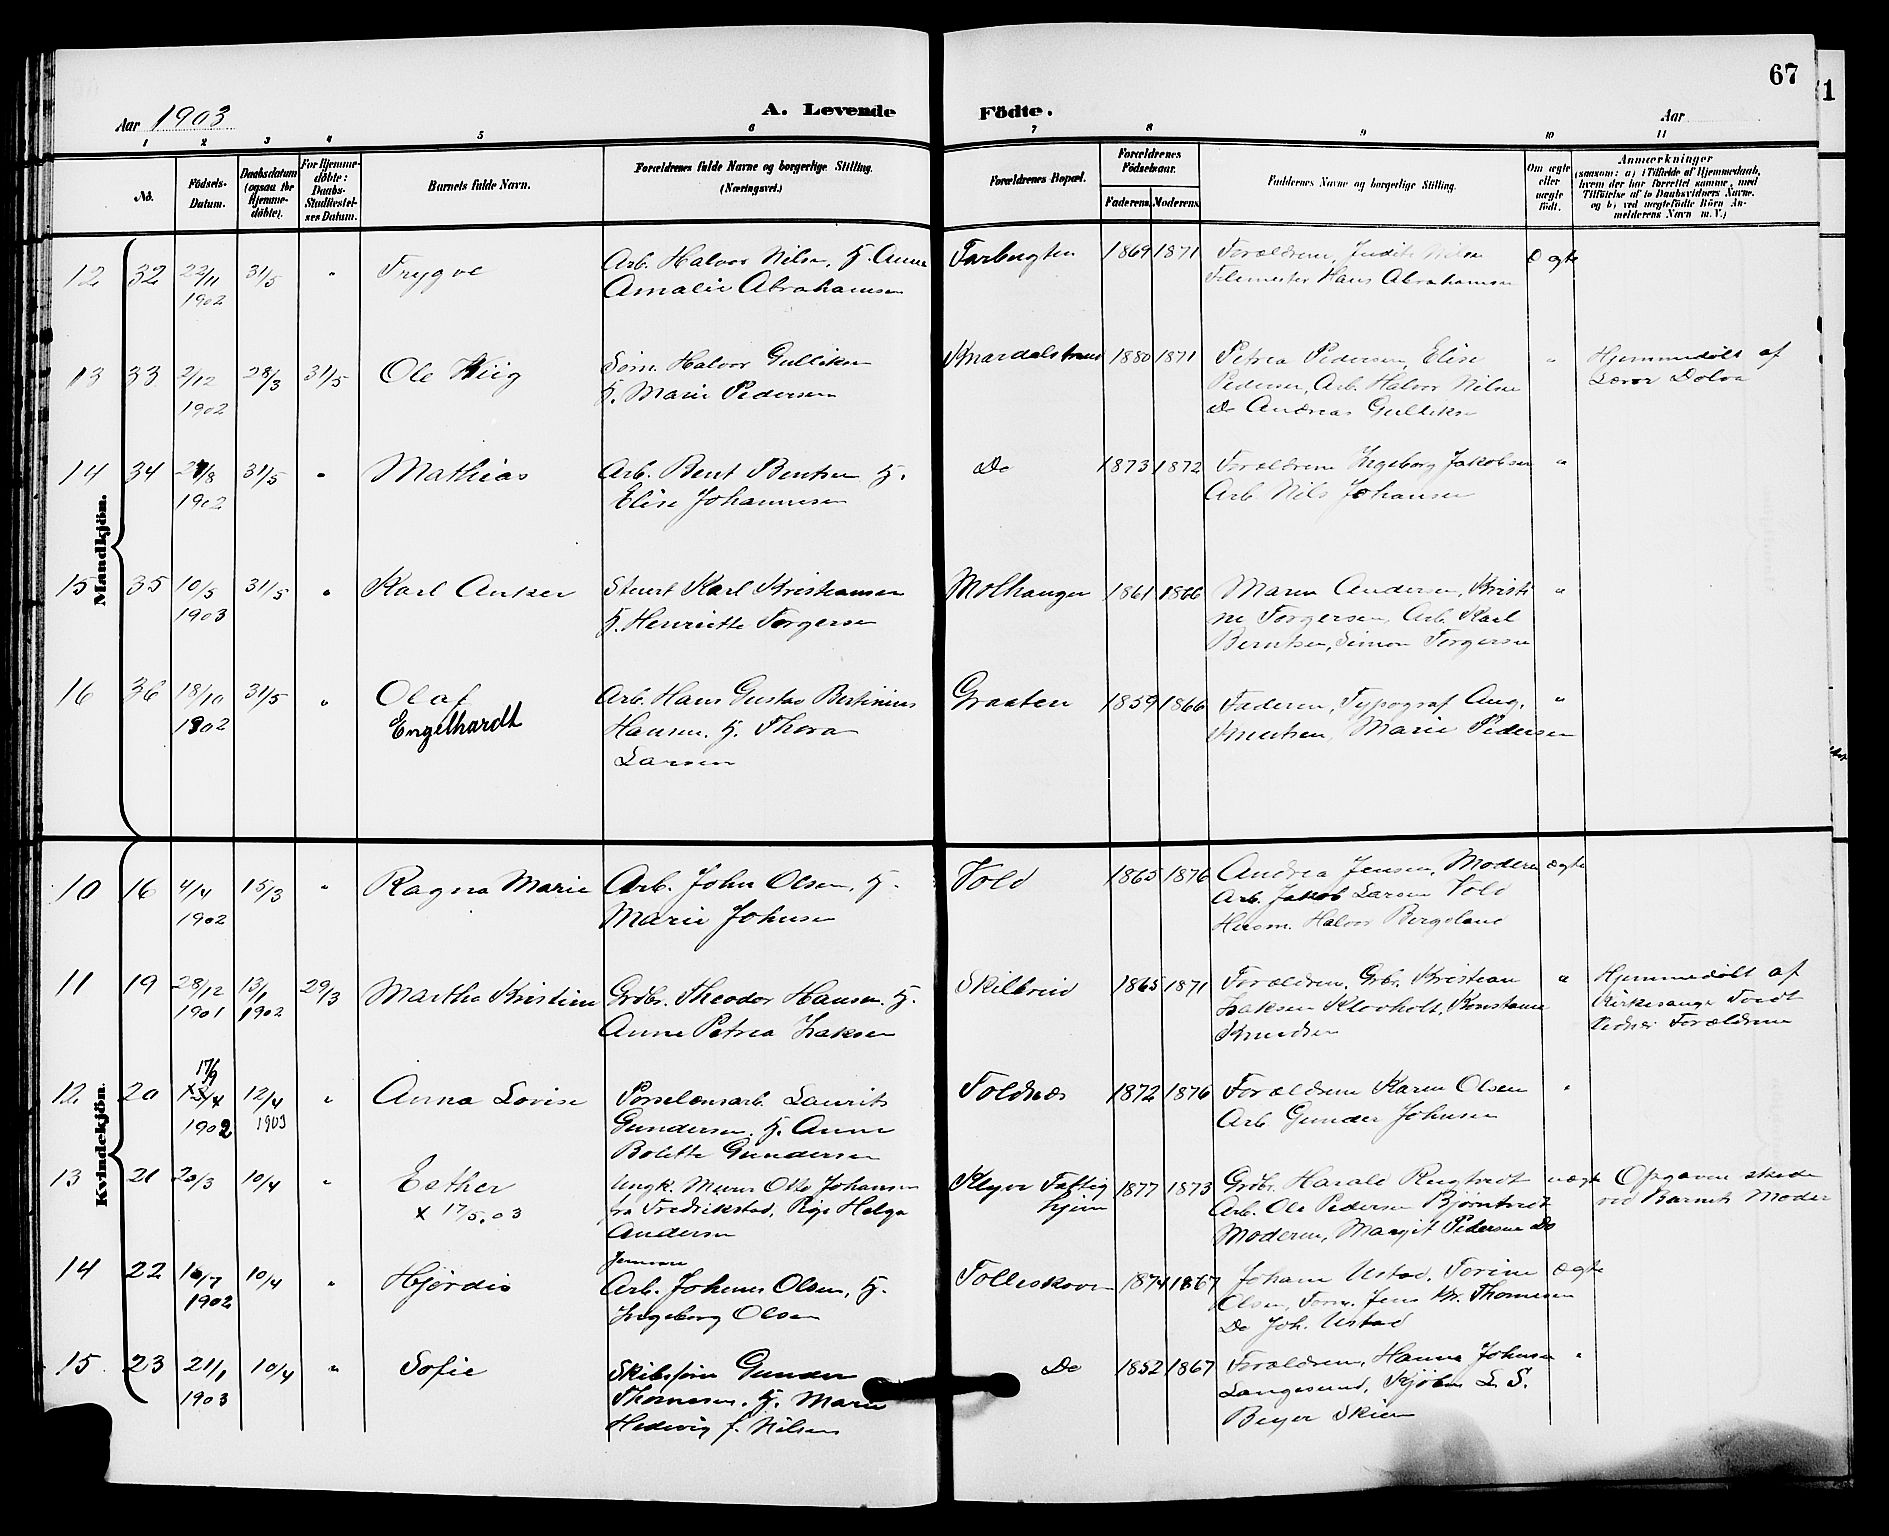 67
Aar 1903
A. Levende Födte.
Aar
1 2 3 4 5 6 7 8 9 10 11
No.
Födsels-Datum.
Daabsdatum (ogsaa for Hjemmedöbte).
For Hjemmedöbte: Daabs-Stadfæstelses Datum.
Barnets fulde Navn.
Forældrenes fulde Navne og borgerlige Stilling. (Næringsvei.)
Forældrenes Bopæl.
Forældrenes Födselsaar.
Faderens. Moderens.
Faddernes Navne og borgerlige Stilling.
Om ægte eller uægte födt.
Anmærkninger
(saasom: a) i Tilfælde af Hjemmedaab, hvem der har forrettet samme, med Tilföielse af to Daabsvidners Navne. og b) ved uægtefödte Börn Anmelderens Navn m. V.)
Mandkjön.
12 32 22/11 1902 31/5 " Trygve
Arb. Halvor Nilsen, H. Anne
Amalie Abrahamsen
1869 1871
Forældrene, Judith Nilsen
Hans Abrahamsen
Ægte
13 33 2/12 1902 28/3 31/5 Ole Kiig
Sörn. Halvor Gulliksen
H. Marie Pedersen
Knardalstrand 1880 1871
Petrea Pedersen, Elise
Pedersen, Arb. Halvor Nilsen
Do Andreas Gulliksen
"
Hjemmedöbt af
Lærer Dolva
14 34 1902 31/5 " Mathias
Arb. Bent Bentsen H.
Elise Johannesen
Do 1873 1872
Forældrene Ingeborg Jakobsen
Arb. Nils Johansen
"
15 35 10/5 1903 31/5 " Karl Anker
Stuert Karl Kristiansen
H. Henriette Torgersen
Molhaugen 1861 1866
Maren Andersen, Kristi
ne Torgersen, Arb. Karl
Berntsen, Simon Torgersen
"
16 36 18/10 1902 31/5 " Olaf
Engelhardt
Arb. Hans Gustav Bertinius
Hansen. H. Thora
Larsen
Graaten 1859 1866
Faderen, Typograf Aug.
Knutsen, Marie Pedersen
"
Kvindekjön.
10 16 4/4 1902 15/3 " Ragna Marie
Arb. John Olsen, H.
Marie Johnsen
Vold 1865 1876
Andrea Jensen, Moderen
Arb. Jakob Larsen Vold
Husm. Halvor Bergeland
ægte
11 19 28/12 1901 13/1 1902 29/3 Martha Kristine
Grdbr. Theodor Hansen. H.
Anne Petrea Isaksen
Skilbreid 1865 1871
Forældrene, Grbr. Kristian
Isaksen Klovholt, Konstance
Knudsen
"
Hjemmedöbt af
Kirkesanger Tvedt
Vidner Forældrene
12 20 17/9 13/4 1902 12/4 1903 " Anna Lovise
Porselænsarb. Laurits
Gundersen, H. Anne
Bolette Gundersen
Toldnæs 1872 1876
Forældrene Karen Olsen
Arb Gunder Johnsen
"
13 21 20/3 10/4 " Esther
x 17/5.03
Ungk. Murer Otto Johansen
fra Fredrikstad, Pige Helga
Andersen
Klyve Fattig
hjem 1877 1873
Grdbr. Harald Rugtvedt
Arb. Ole Pedersen Björntvedt
Moderen, Margit Pedersen Do
uægt
Opgaven skede
ved Barnets Moder
14 22 10/7 1902 10/4 " Hjördis
Arb. Johenes Olsen, H.
Ingeborg Olsen
Tolleskoven 1874 1867
Johane Ustad, Torine
Olsen, Form. Jens Kr. Thomesen
Do Joh. Ustad
ægte
15 23 21/1 1903 10/4 " Sofie
Skibsförer Gunder
Thomesen. H. Maren
Hedevig f. Nilsen
Do 1852 1867
Forældrene, Hanna Johnsen
Langesund, Kjöbm L. S.
Beyer Skien
"